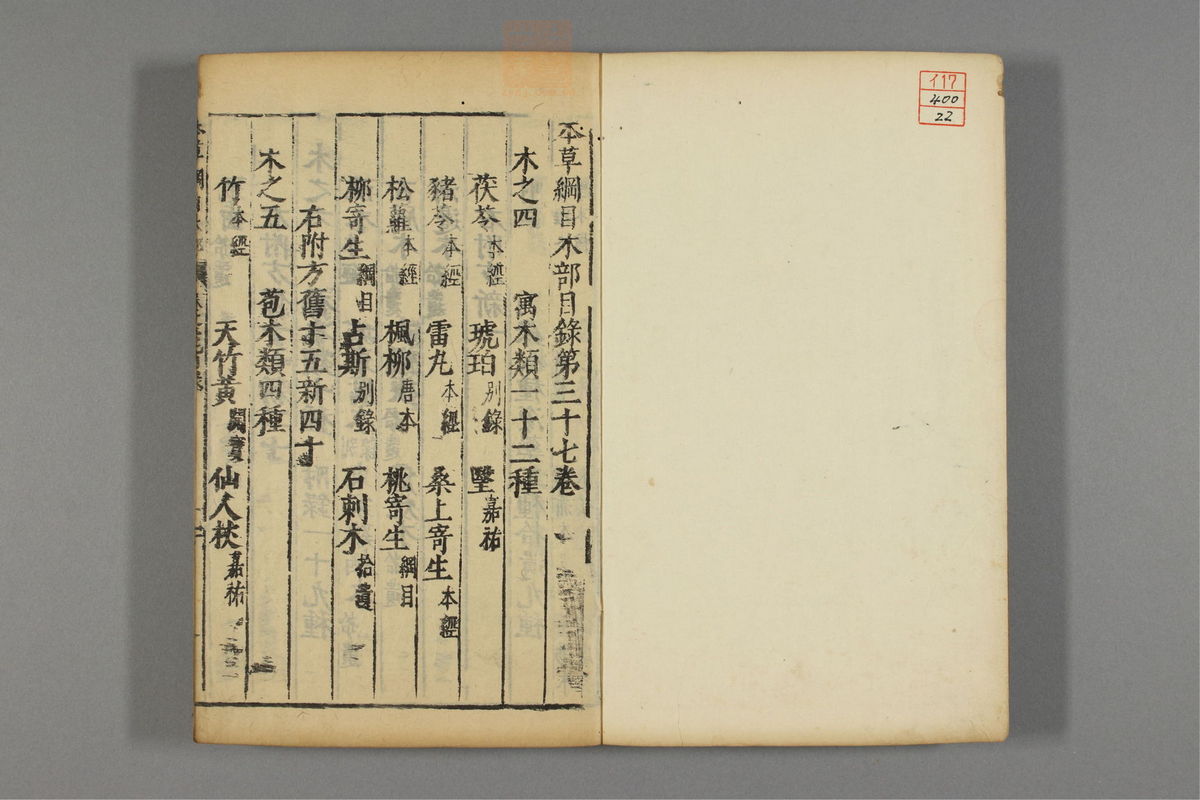 本草綱目木部目錄第三十七卷
木之四 寓木類一十二種
茯苓本經 琥珀別錄 瑿嘉祐
豬苓本經 雷丸本經 桑上寄生本經
松蘿本經 楓柳唐本 桃寄生綱目
柳寄生綱目 占斯別錄 石刺木拾遺
右附方舊十五新四十
木之五 苞木類四種
竹本經 天竹黃開寶 仙人杖嘉祐
117
400
22